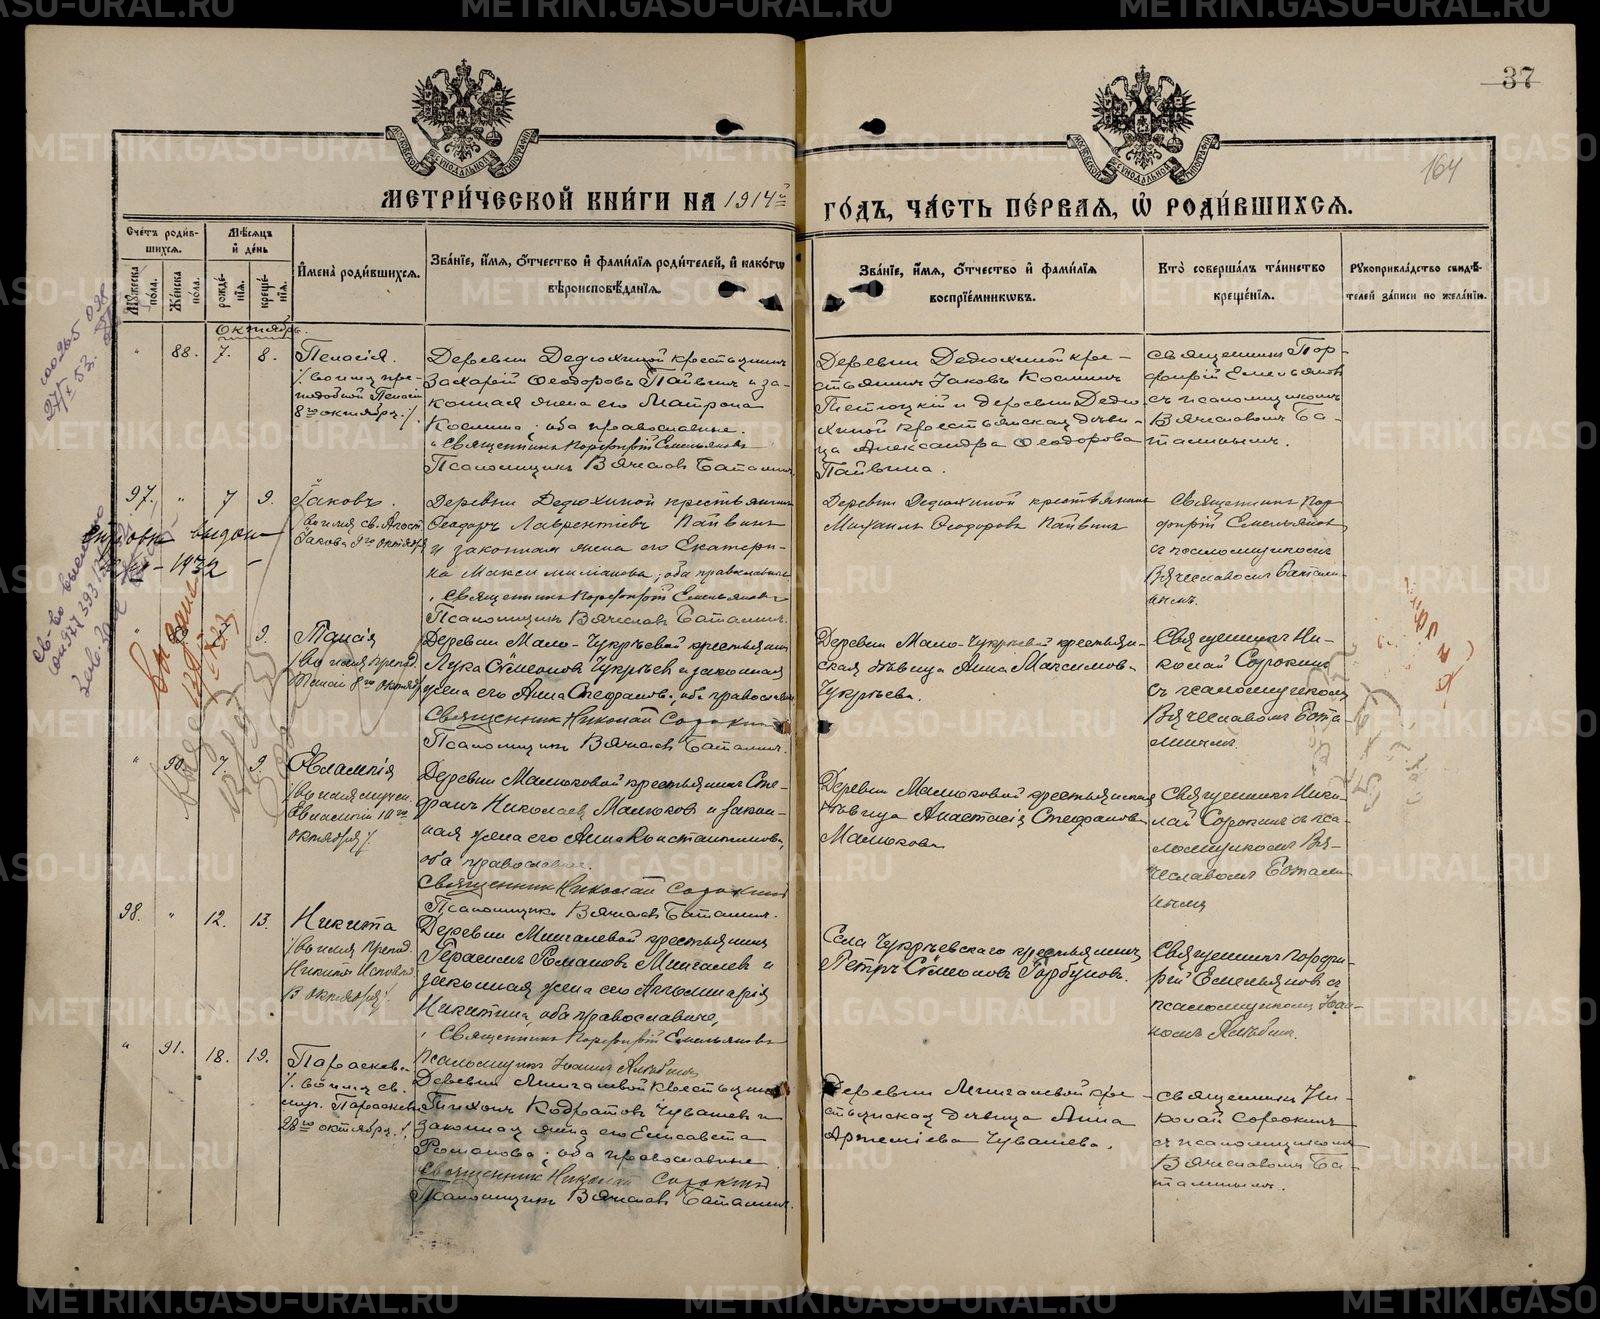 37
164
МОСКОВСКОЙ СѴНОДАЛЬНОЙ ТИПОГРАФІИ
МОСКОВСКОЙ СѴНОДАЛЬНОЙ ТИПОГРАФІИ
МЕТРИ́ЧЕСКОЙ КНИ́ГИ НА 1914й
ГО́ДЪ, ЧА́СТЬ ПЕ́РВАЯ, Ѡ РОДИ́ВШИХСЯ.
Сче́тъ роди́в-
шихся.
Мѣ́сяцъ
и де́нь
Мꙋ́жеска по́ла.
Же́нска по́ла.
рожде́нїя.
креще́нїя.
И҆мена̀ роди́вшихся.
Зва́нїе, и҆́мя, ѻ҆́тчество и҆ фами́лїя роди́телей, и҆ како́гѡ
вѣроисповѣ́данїя.
Зва́нїе, и҆́мя, ѻ҆́тчество и҆ фами́лїя
воспрїе́мникѡвъ.
Кто̀ соверша́лъ та́инство
креще́нїя.
Рꙋкоприкла́дство свидѣ́-
телей за́писи по жела́нїю.
Октябрь.
" 88. 7. 8.
Пелагія.
/. во имя пре-
подобной Пелагіи
8го октября. /.
Деревни Дедюхиной крестьянинъ
Захарій Ѳеодоровъ Пайвинъ и за-
конная жена его Матрона
Космина; оба православные.
Священникъ Порфирій Емельяновъ
Псаломщикъ Вячеславъ Баталинъ.
Деревни Дедюхиной кре-
стьянинъ Іаковъ Косминъ
и деревни Дедю-
хиной крестьянская дѣви-
ца Александра Ѳеодорова
Пайвина.
Священникъ Пор-
фирій Емельяновъ
съ псаломщикомъ
Вячеславомъ Ба-
талинымъ.
97. " 7 9.
Іаковъ.
во имя св. Апост.
Іакова 9го октября
Деревни Дедюхиной крестьянинъ
Ѳеодоръ Лаврентіевъ Пайвинъ
и законная жена его Екатери-
на Максимиліанова; оба православные
Священникъ Порфирій Емельяновъ
Псаломщикъ Вячеславъ Баталинъ.
Деревни Дедюхиной крестьянинъ
Михаилъ Ѳеодоровъ Пайвинъ
Священникъ Пор-
фирій Емельяновъ
съ псаломщикомъ
Вячеславомъ Батали-
нымъ.
" 9.
Таисія
/во имя препод.
Таисіи 8го октября
Деревни Мало-Чукреевой крестьянинъ
Лука Симеоновъ Чукреевъ и законная
жена его Анна Стефанова, оба православные
Священникъ Николай Сорокинъ
Псаломщикъ Вячеславъ Баталинъ.
Деревни Мало-Чукреевой крестьян-
ская дѣвица Анна Максимова
Чукреева.
Священникъ Ни-
колай Сорокинъ
съ псаломщикомъ
Вячеславомъ Бата-
линымъ.
" 90. 7. 9.
Евлампія
/во имя мучен.
Евлампіи 10го
октября/.
Деревни Малюковой крестьянинъ Сте-
фанъ Николаевъ Малюковъ и закон-
ная жена его Анна Константинова,
оба православные.
Священникъ Николай Сорокинъ
Псаломщикъ Вячеславъ Баталинъ.
Деревни Малюковой крестьянская
дѣвица Анастасія Стефанова
Малюкова
Священникъ Нико-
лай Сорокинъ съ пса-
ломщикомъ Вя-
чеславомъ Батали-
нымъ
98. " 12. 13.
Никита
/во имя препод.
Никиты Исповѣд.
13 октября/.
Деревни Мингалевой крестьянинъ
Герасимъ Романовъ Мингалевъ и
законная жена его Аполлинарія
Никитина, оба православные,
Священникъ Порфирій Емельяновъ
Псаломщикъ Іоаннъ
Села Чукреевскаго крестьянинъ
Петръ Симеоновъ Горбуновъ.
Священникъ Порфи-
рій Емельяновъ съ
псаломщикомъ Іоан-
номъ
" 91. 18. 19.
Параскева
/. во имя св.
муч. Параскевы
28го октября. /.
Деревни Мингалевой крестьянинъ
Тихонъ Кодратовъ Чувашевъ и
законная жена его Елисавета
Романова; оба православные.
Священникъ Николай Сорокинъ
Псаломщикъ Вячеславъ Баталинъ.
Деревни Мингалевой кре-
стьянская дѣвица Анна
Артеміева Чувашева.
Священникъ Ни-
колай Сорокинъ
съ псаломщикомъ
Вячеславомъ Ба-
талинымъ.
METRIKI.GASO-URAL.RU